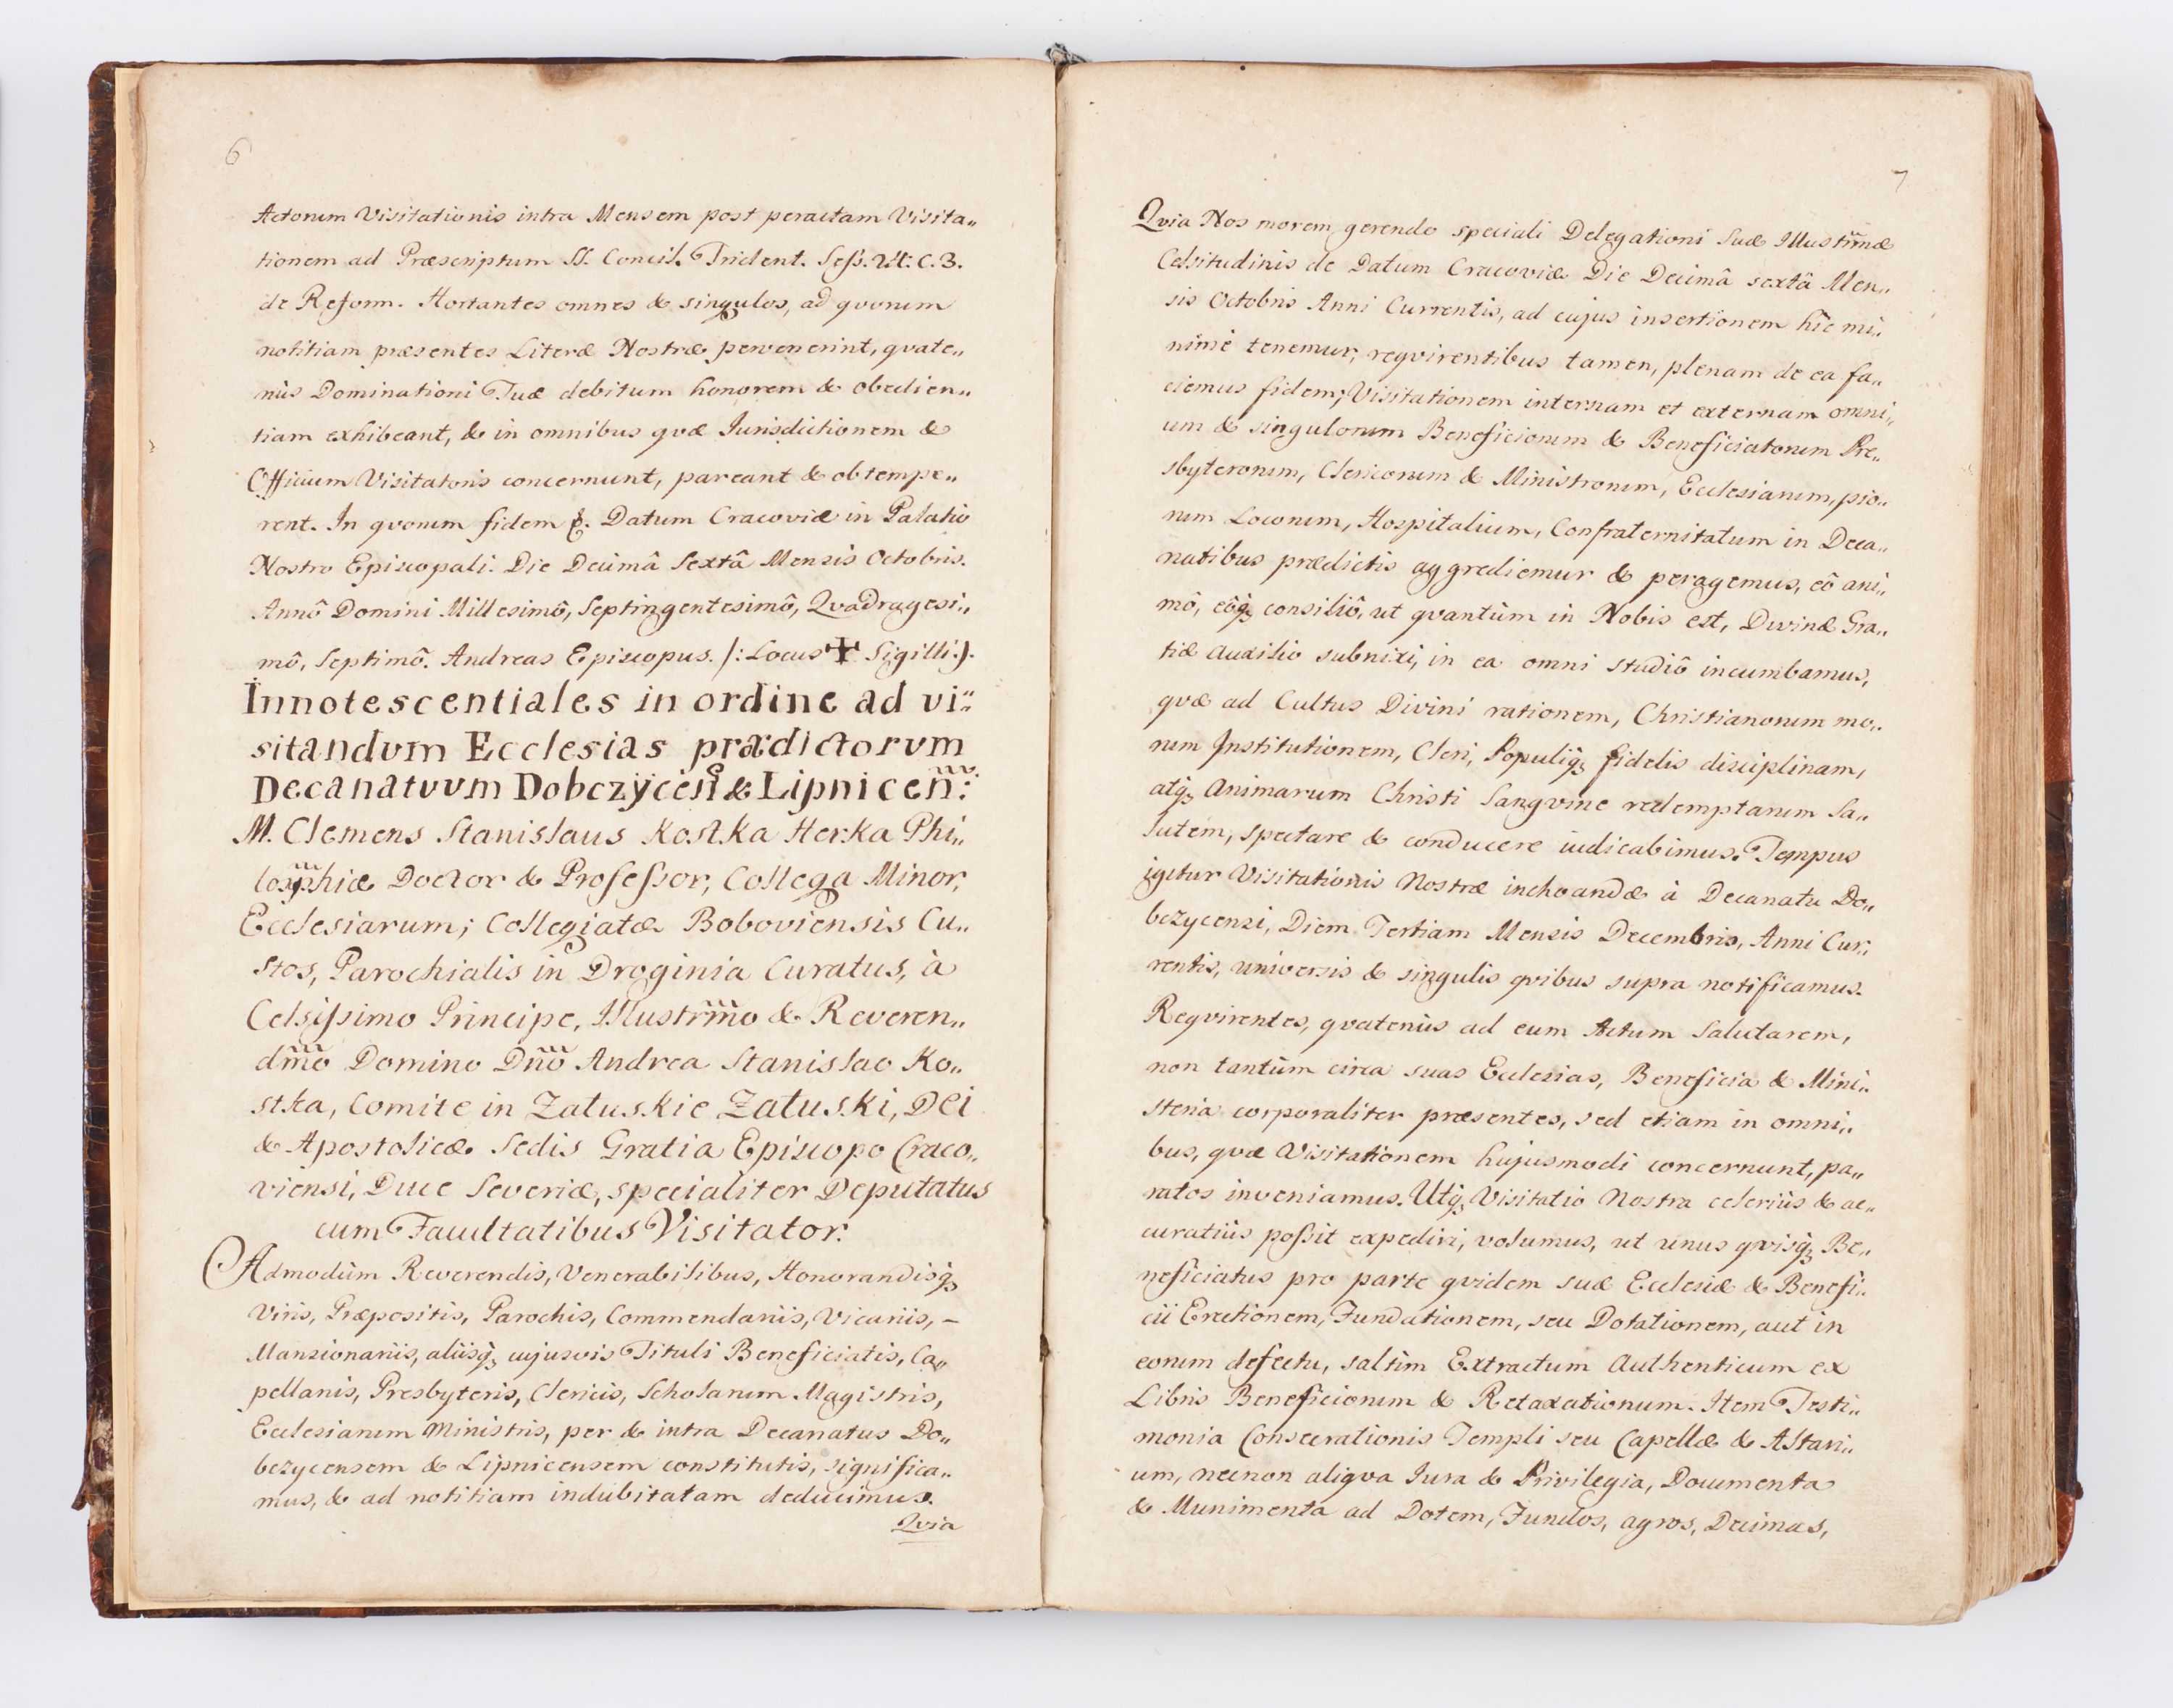 6
Actorum Visitationis intra Mensem post peractam Visita„
tionem ad Præscriptum SS. Concil. Trident. Sess. 24. C. 3.
de Reform. Hortantes omnes & singulos, ad qvorum
notitiam præsentes Literæ Nostræ pervenerint, qvate„
nùs Dominationi Tuæ debitum honorem & obedien„
tiam exhibeant, & in omnibus qvæ Iurisdictionem &
Officium Visitatoris concernunt, pareant & obtempe„
rent. In qvorum fidem &. Datum Cracoviæ in Palatio
Nostro Episcopali. Die Decimâ Sextâ Mensis Octobris.
Annô Domini Millesimô, Septingentesimô, Qvadragesi„
mô, Septimô. Andreas Episcopus. /: Locus ✝ Sigilli:/.
Innotescentiales in ordine ad vi„
sitandvm Ecclesias prædictorvm
Decanatvvm Dobczÿceñ & Lipniceñ:
M. Clemens Stanislaus Kostka Herka Phi„
losophiæ Doctor & Professor, Collega Minor,
Ecclesiarum; Collegiatæ Boboviensis Cu„
stos, Parochialis in Droginia Curatus, à
Celsissimo Principe, Illustrm̃o & Reveren„
dm̃o Domino Dño Andrea Stanislao Ko„
stka, Comite in Zatuskie Zatuski, Dei
& Apostolicæ Sedis Gratia Episcopo Craco„
viensi, Duce Severiæ, specialiter Deputatus
cum Facultatibus Visitator.
Admodùm Reverendis, Venerabilibus, Honorandisq́ꝫ
Viris, Præpositis, Parochis, Commendariis, Vicariis, –
Mansionariis, aliisq́ꝫ cujusvis Tituli Beneficiatis, Ca„
pellanis, Presbyteris, Clericis, Scholarum Magistris,
Ecclesiarum Ministris, per & intra Decanatus Do„
bczycensem & Lipnicensem constitutis, significa„
mus, & ad notitiam indubitatam deducimus.
Qvia
7
Qvia Nos morem gerendo speciali Delegationi Suæ Illustrm̃æ
Celsitudinis de Datum Cracoviæ Die Decimâ sextâ Men„
sis Octobris Anni Currentis, ad cujus insertionem hîc mi„
nimè tenemur, reqvirentibus tamen, plenam de ea fa„
ciemus fidem; Visitationem internam et externam omni„
um & singulorum Beneficiorum & Beneficiatorum Pre„
sbyterorum, Clericorum & Ministrorum, Ecclesiarum, pio„
rum Locorum, Hospitalium, Confraternitatum in Deca„
natibus prædictis aggrediemur & peragemus, eô ani„
mô, eôq́ꝫ consiliô, ut qvantùm in Nobis est, Divinæ Gra„
tiæ Auxilio subnixi, in ea omni studiô incumbamus,
qvæ ad Cultus Divini rationem, Christianorum mo„
rum Institutionem, Cleri, Populiq́ꝫ fidelis disciplinam,
atq́ꝫ Animarum Christi Sangvine redemptarum Sa„
lutem, spectare & conducere iudicabimus. Tempus
igitur Visitationis Nostræ inchoandæ à Decanatu Do„
bczycensi, Diem Tertiam Mensis Decembris, Anni Cur„
rentis, universis & singulis qvibus supra notificamus.
Reqvirentes, qvatenùs ad eum Actum Salutarem,
non tantùm circa suas Ecclesias, Beneficia & Mini„
steria corporaliter præsentes, sed etiam in omni„
bus, qvæ Visitationem hujusmodi concernunt, pa„
ratos inveniamus. Utq́ꝫ Visitatio Nostra celeriùs & ac„
curatiùs possit expediri, volumus, ut unus qvisq́ꝫ Be„
neficiatus pro parte qvidem suæ Ecclesiæ & Benefi„
cii Erectionem, Fundationem, seu Dotationem, aut in
eorum defectu, saltìm Extractum Authenticum ex
Libris Beneficiorum & Retaxationum. Item Testi„
monia Consecrationis Templi seu Capellæ & Altari„
um, necnon aliqva Iura & Privilegia, Documenta
& Munimenta ad Dotem, Fundos, agros, Decimas,